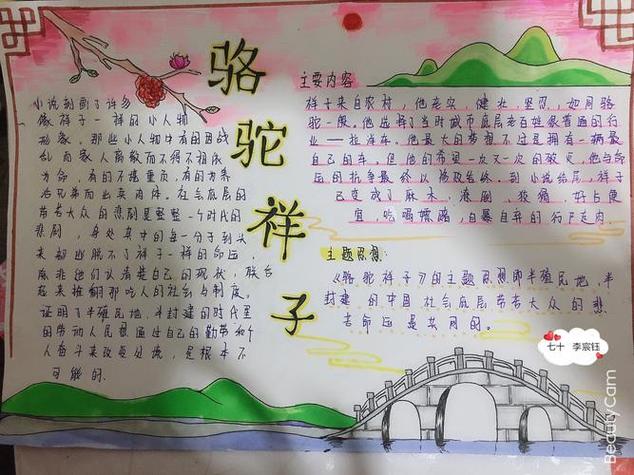 骆驼祥子
小说刻画了许多
像祥子一样的小人物
形象，那些小人物中有的因战
乱而家人离散而不得不相依
为命，有的不堪重负，有的为养
活兄弟而出卖肉体。社会底层的
劳苦大众的悲剧是整整一个时代的
悲剧，身处其中的每一分子到头
来都逃脱不了祥子一样的命运，
除非他们认清楚自己的现状，联合
起来推翻那吃人的社会与制度。
证明了半殖民地、半封建的时代里
的劳动人民想通过自己的勤劳和个
人奋斗来改变处境，是根本不
可能的.
主要内容
祥子来自农村，他老实、健壮、坚忍，如同骆
驼一般。他选择了当时城市底层老百姓很普通的行
业——拉洋车。他最大的梦想不过是拥有一辆最
自己的车。但他的希望一次又一次的破灭，他与命
运的抗争最终以惨败告终。到小说结尾，祥子
已变成了麻木、潦倒、狡猾、好占便
宜、吃喝嫖赌，自暴自弃的行尸走肉.
主题思想：
《骆驼祥子》的主题思想即半殖民地、半
封建的中国社会底层劳苦大众的悲
苦命运是共同的。
七十 李宸钰
BeautyCam